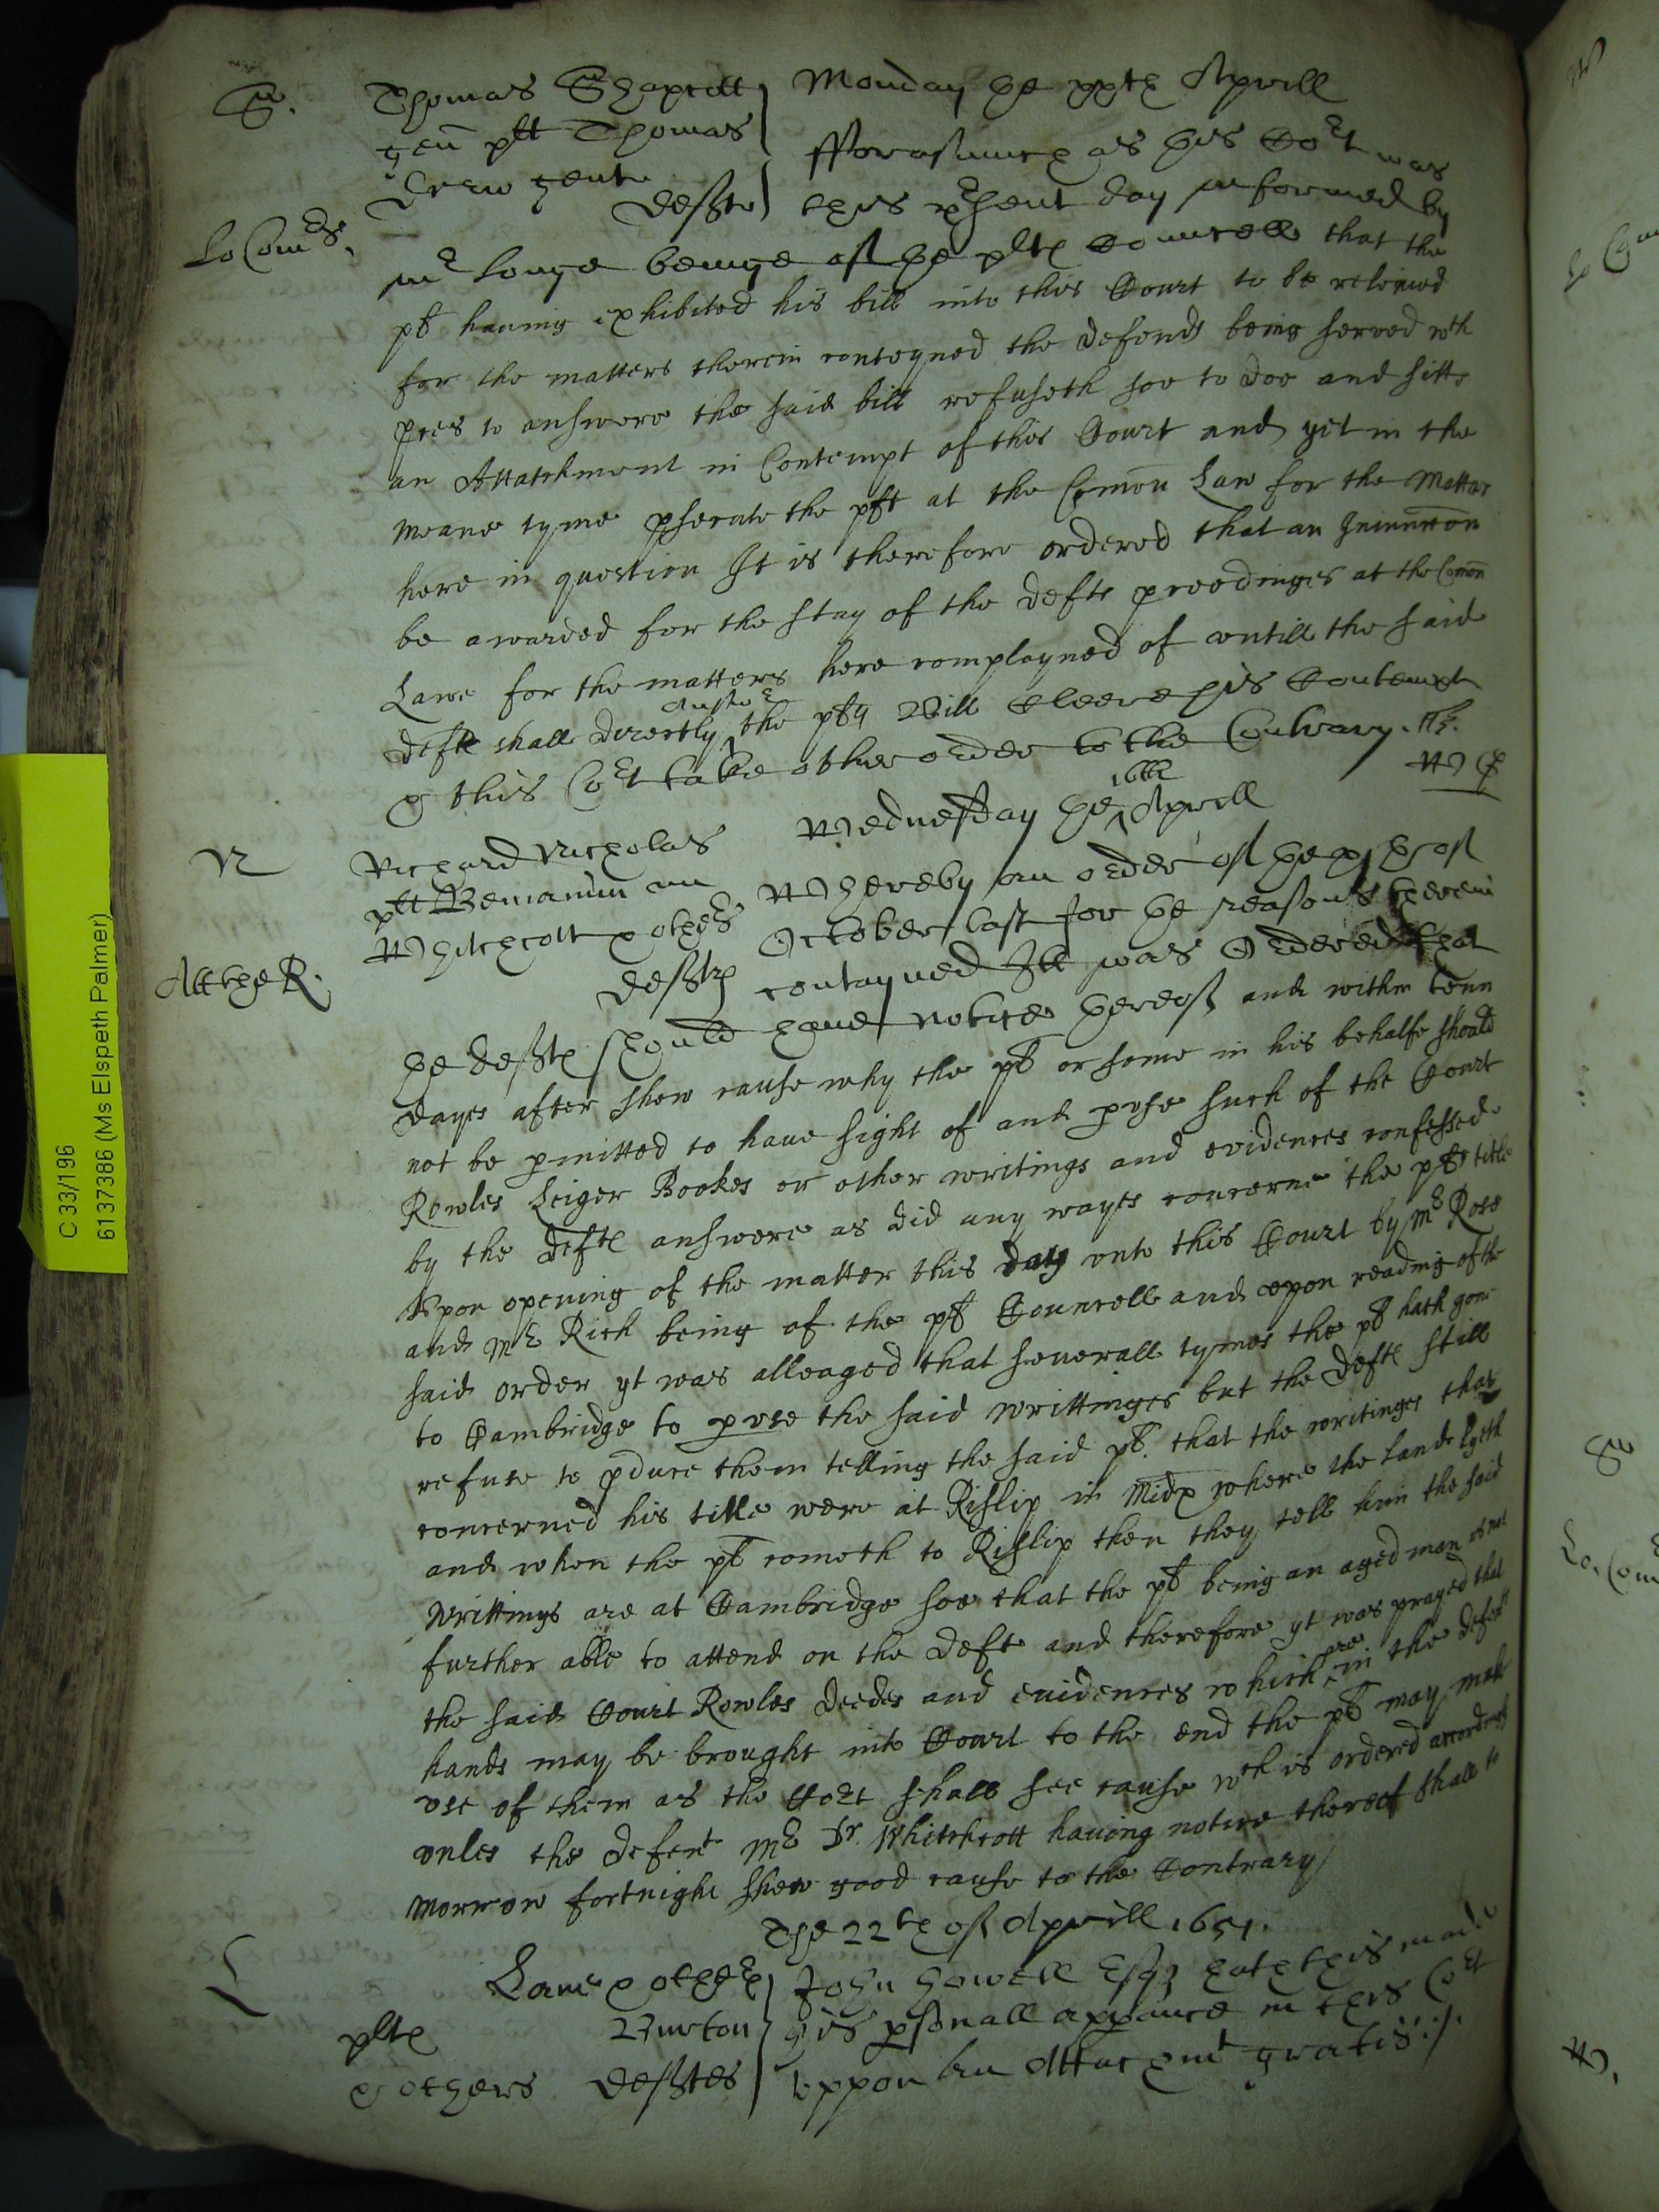 S.
Thomas Shapcott
gen plt Thomas
Drew gent
deft
Monday the xxjth Aprill
Lo Comrs.
fforasmuch as this Cort was
this psent day informed by
mr Longe beinge of the plts Councell that the
plt hauing exhibited his bill into this Court to be releiued
for the matters therein conteyned the Defendt being serued wth
pces to answere the said bill refuseth soe to doe and sitts
an Attatchment in Contempt of this Court and yet in the
meane tyme psecute the plt at the Comon Law for the Matter
here in question It is therefore ordered that an Iniunccon
be awarded for the stay of the Defts proceedinges at the Comon
Lawe for the matters here complayned of vntill the said
Deft shall directly answer the plts Bill cleere his Contempt
& this Cort take other order to the Contrary.
N
Richard Nicholas
plt Beniamin
Whitchcott & others
defts
Wednesday the 16th Aprill
Att the R.
Whereby an order of the
October last for the reasons therein
contayned Itt was Ordered that
the defts should haue notice thereof and within tenn
dayes after shew cause why the plt or some in his behalfe should
not be pmitted to haue sight of and pvse such of the Court
Rowles Leiger Bookes or other writings and evidences confessed
by the Defts answere as did any wayes concerne the plts title
Vpon opening of the matter this day vnto this Court by Mr
and Mr Rich being of the plt Councell and vpon reading of the
said order yt was alleaged that seuerall tymes the plt hath gone
to Cambridge to pvse the said writtinges but the Defts still
refuse to pduce them telling the said plt that the writinges that
concerned his title were at Rislip in Midx where the lands lyeth
and when the plt cometh to Rislip then they tell him the said
writtings are at Cambridge soe that the plt being an aged man is not
further able to attend on the Defts and therefore yt was prayed that
the said Court Rowles Deedes and euidences which are in the defendts
hands may be brought into Court to the end the plt may make
vse of them as the Cort shall see cause wch is ordered accordingly
vnles the Defent Mr Dr. Whitchcott hauing notice thereof shall to
morrow fortnight shew good cause to the Contrary
The 22th of Aprill 1651.
L
Lane & others
plts Burton
& others deftes
John Howell Esqr hath this made
his psonall appance in this Cort
vppon an Attachmt gratis
C 33/196
6137386 (Ms Elspeth Palmer)